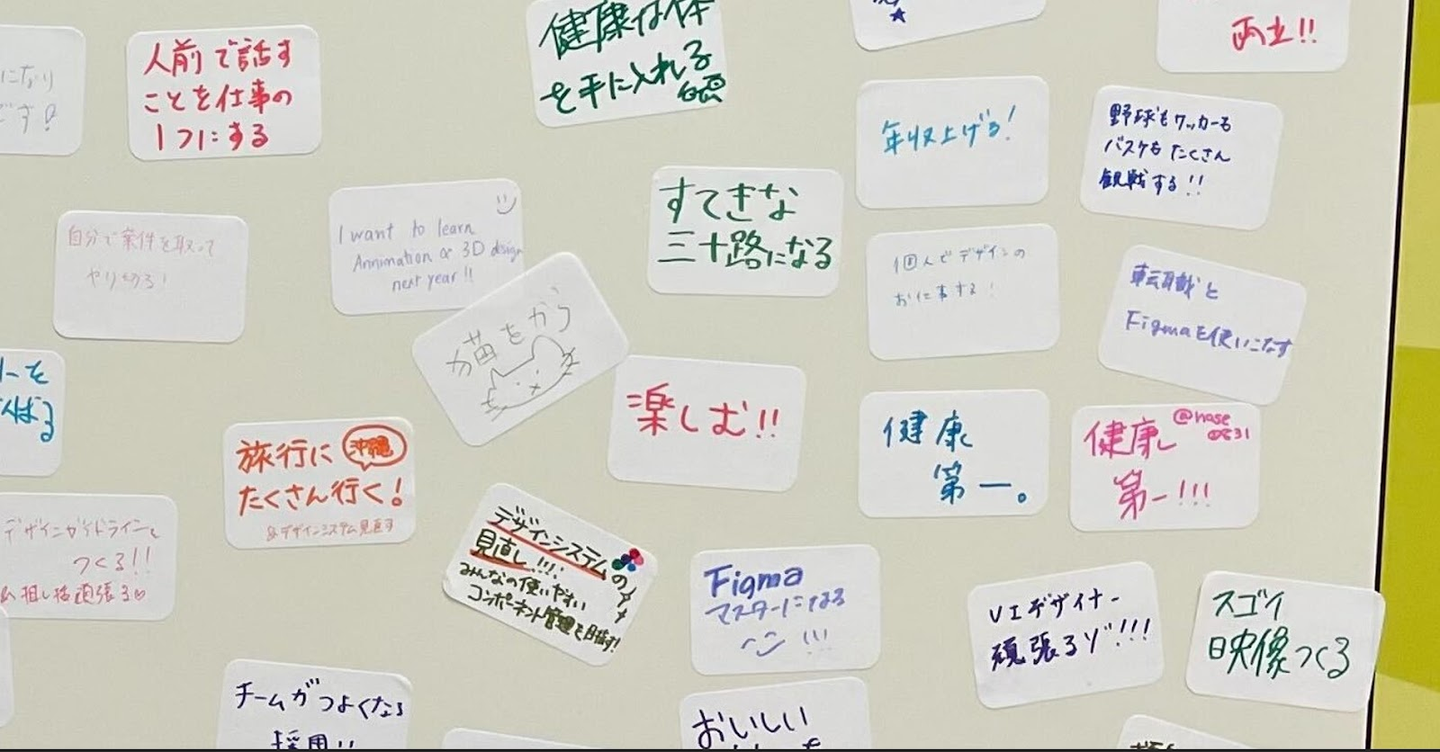 人前で話す
ことを仕事の
1つにする
健康な体
を手に入れる
両立!!
年収上げる!
野球もサッカーも
バスケもたくさん
観戦する!!
自分で案件を取って
やり切る!
I want to learn
Annimation or 3D design
next year!!
すてきな
三十路になる
個人でデザインの
お仕事する!
転職と
Figmaを使いこなす
猫をかう
楽しむ!!
健康
第一。
健康 @nase
0831
第一!!!
旅行に 沖縄
たくさん行く!
&デザインシステム見直す
デザインガイドラインを
つくる!!
頑張る♡
デザインシステムの
見直し!!!
みんなの使いやすい
コンポーネント管理を目指す!
Figma
マスターになる
!!!
VIデザイナー
頑張るゾ!!!
スゴイ
映像つくる
チームがつよくなる
採用!!
おいしい